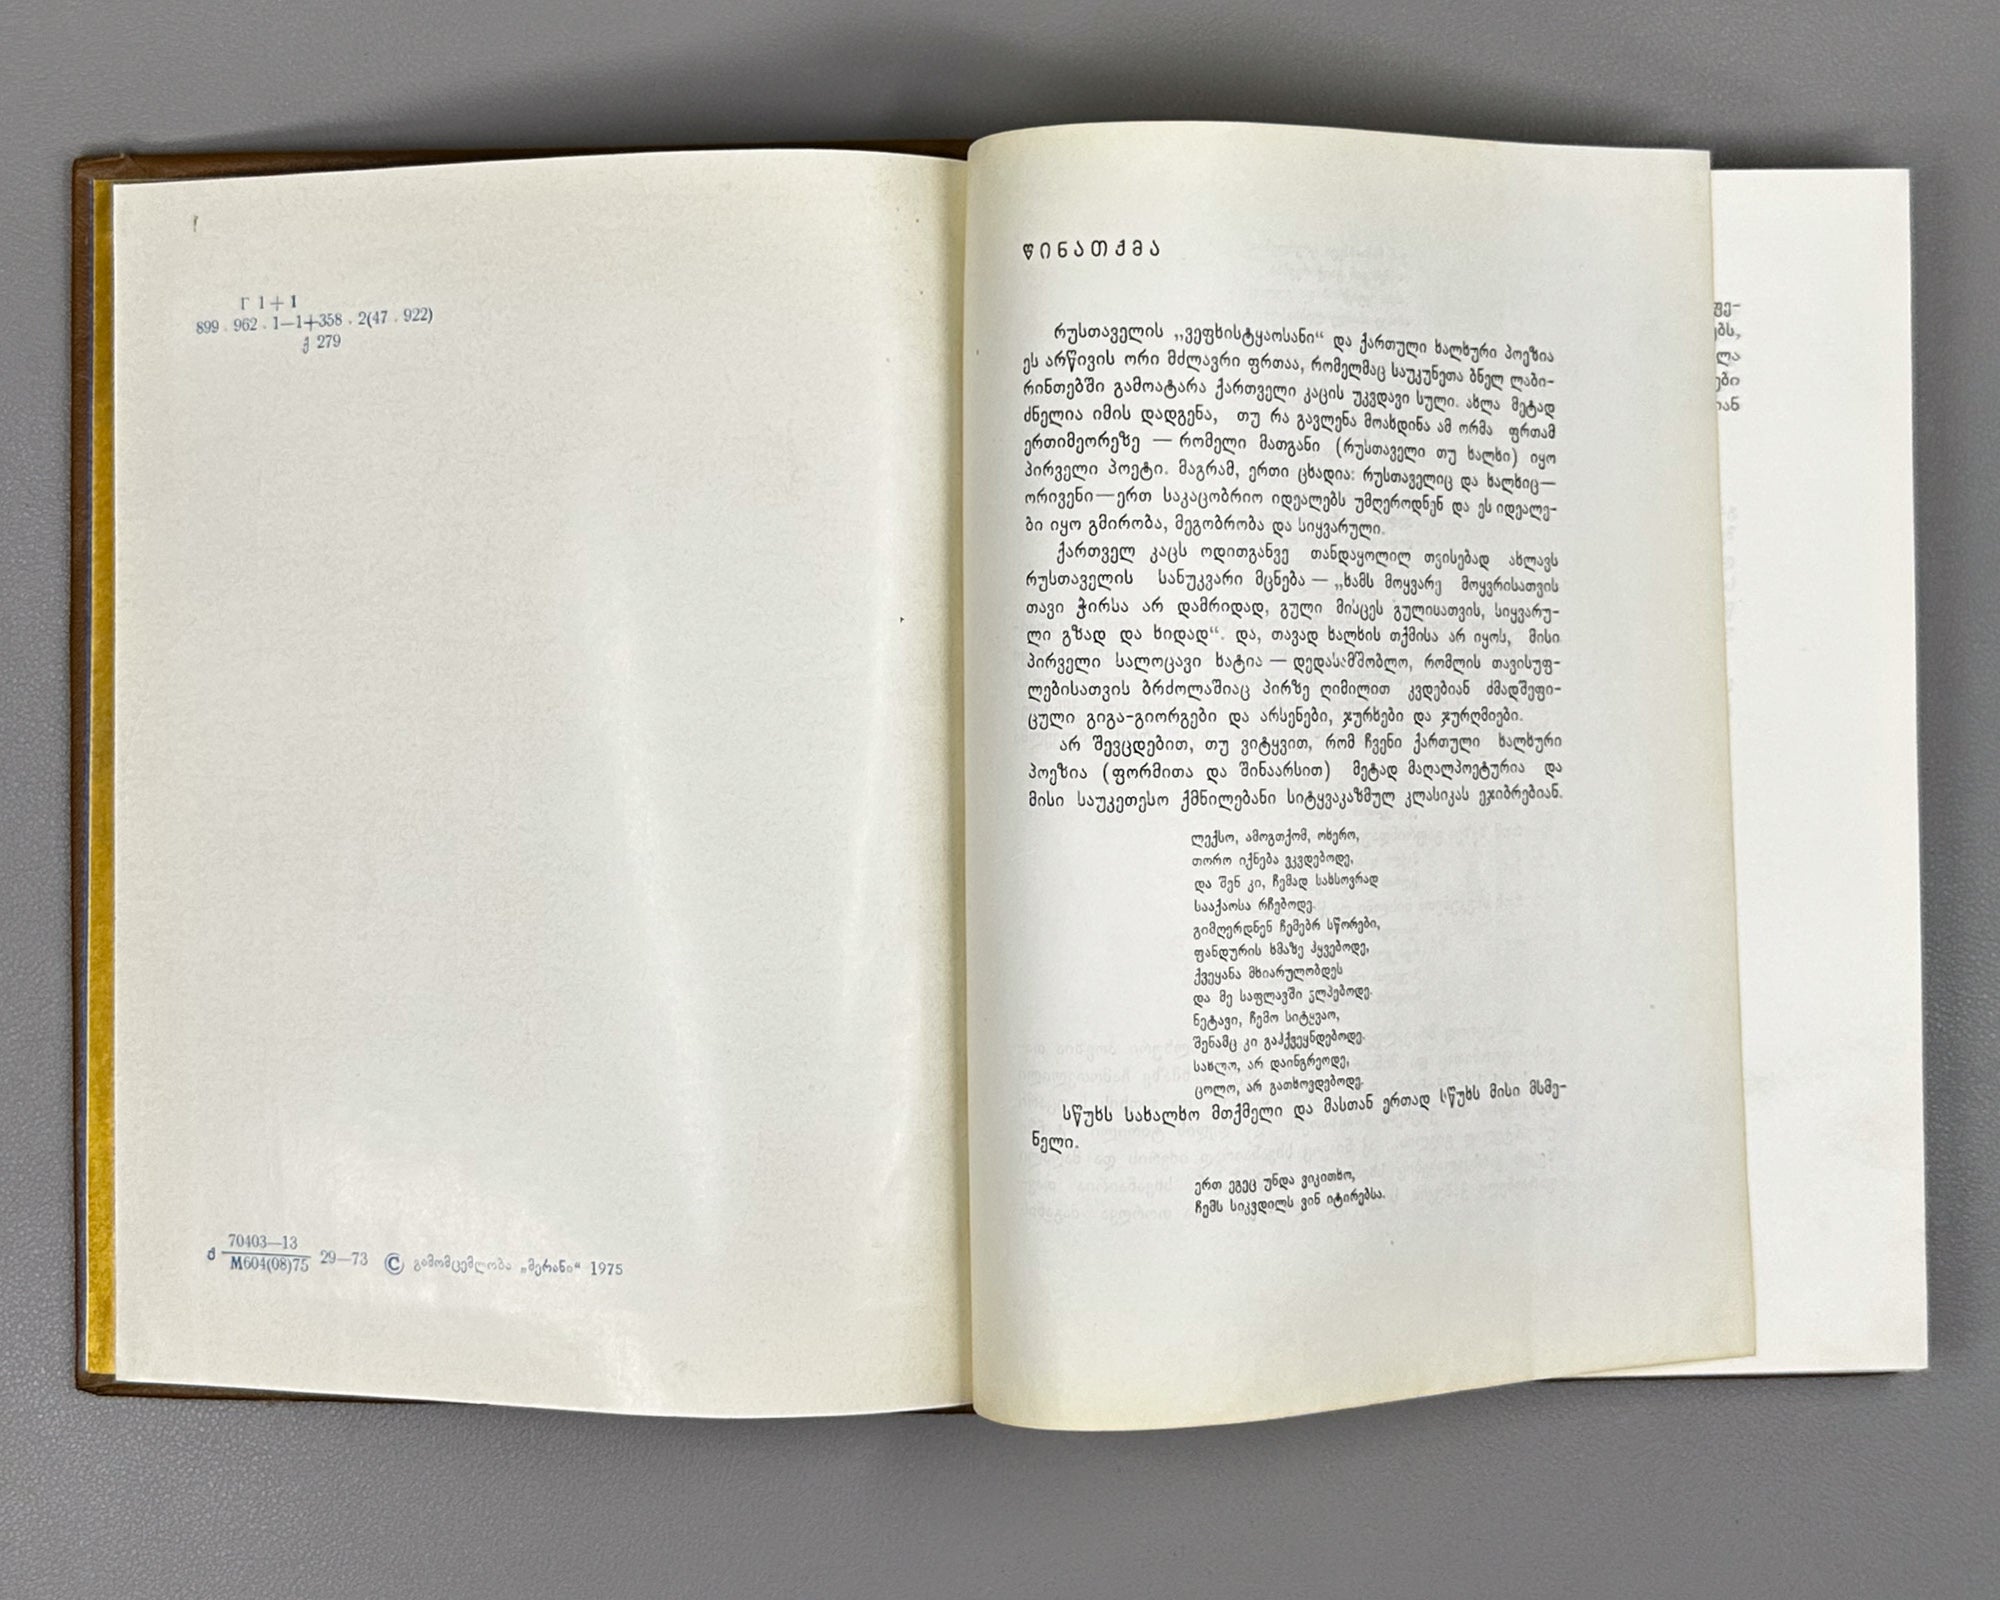 Г 1+1
899 . 962 . 1—1+358 . 2(47 . 922)
ქ 279
ქ 70403—13
М604(08)75 29—73 © გამომცემლობა „მერანი“ 1975
წინათქმა
რუსთაველის „ვეფხისტყაოსანი“ და ქართული ხალხური პოეზია
ეს არწივის ორი მძლავრი ფრთაა, რომელმაც საუკუნეთა ბნელ ლაბი-
რინთებში გამოატარა ქართველი კაცის უკვდავი სული. ახლა მეტად
ძნელია იმის დადგენა, თუ რა გავლენა მოახდინა ამ ორმა ფრთამ
ერთიმეორეზე — რომელი მათგანი (რუსთაველი თუ ხალხი) იყო
პირველი პოეტი. მაგრამ, ერთი ცხადია: რუსთაველიც და ხალხიც—
ორივენი—ერთ საკაცობრიო იდეალებს უმღეროდნენ და ეს იდეალე-
ბი იყო გმირობა, მეგობრობა და სიყვარული.
ქართველ კაცს ოდითგანვე თანდაყოლილ თვისებად ახლავს
რუსთაველის სანუკვარი მცნება — „ხამს მოყვარე მოყვრისათვის
თავი ჭირსა არ დამრიდად, გული მისცეს გულისათვის, სიყვარუ-
ლი გზად და ხიდად“. და, თავად ხალხის თქმისა არ იყოს, მისი
პირველი სალოცავი ხატია — დედასამშობლო, რომლის თავისუფ-
ლებისათვის ბრძოლაშიაც პირზე ღიმილით კვდებიან ძმადშეფი-
ცული გიგა-გიორგები და არსენები, ჯურხები და ჯურღმიები.
არ შევცდებით, თუ ვიტყვით, რომ ჩვენი ქართული ხალხური
პოეზია (ფორმითა და შინაარსით) მეტად მაღალპოეტურია და
მისი საუკეთესო ქმნილებანი სიტყვაკაზმულ კლასიკას ეჯიბრებიან.
ლექსო, ამოგთქომ, ოხერო,
თორო იქნება ვკვდებოდე,
და შენ კი, ჩემად სახსოვრად
სააქაოსა რჩებოდე.
გიმღერდნენ ჩემებრ სწორები,
ფანდურის ხმაზე ჰყვებოდე,
ქვეყანა მხიარულობდეს
და მე საფლავში ვლპებოდე.
ნეტავი, ჩემო სიტყვაო,
შენამც კი გაჰქვეყნდებოდე.
სახლო, არ დაინგრეოდე,
ცოლო, არ გათხოვდებოდე.
სწუხს სახალხო მთქმელი და მასთან ერთად სწუხს მისი მსმე-
ნელი.
ერთ ეგეც უნდა ვიკითხო,
ჩემს სიკვდილს ვინ იტირებსა.
ფე-
ებს,
ლა
ები
იან